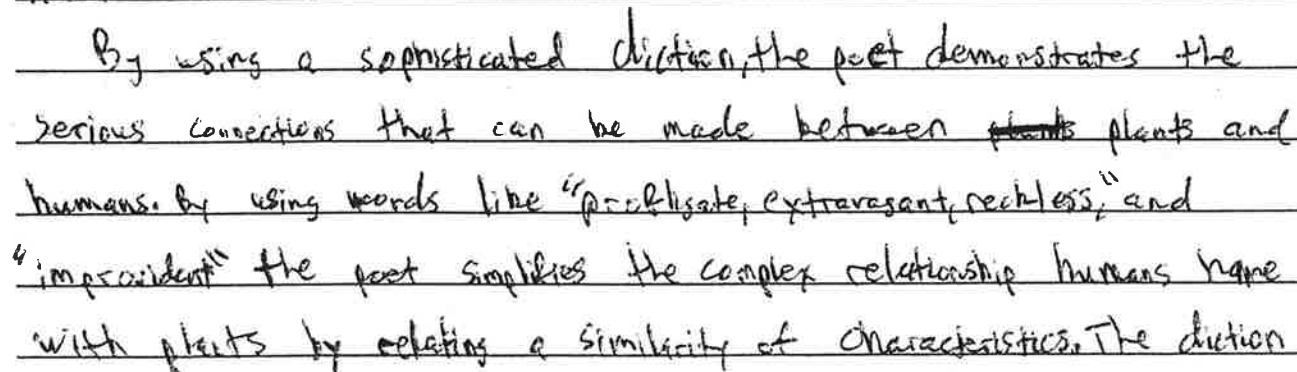 By using a sophisticated diction, the poet demonstrates the
serious connections that can be made between plants plants and
humans. By using words like "profligate, extravagant, reckless," and
"improvident" the poet simplifies the complex relationship humans have
with plants by relating a similarity of characteristics. The diction